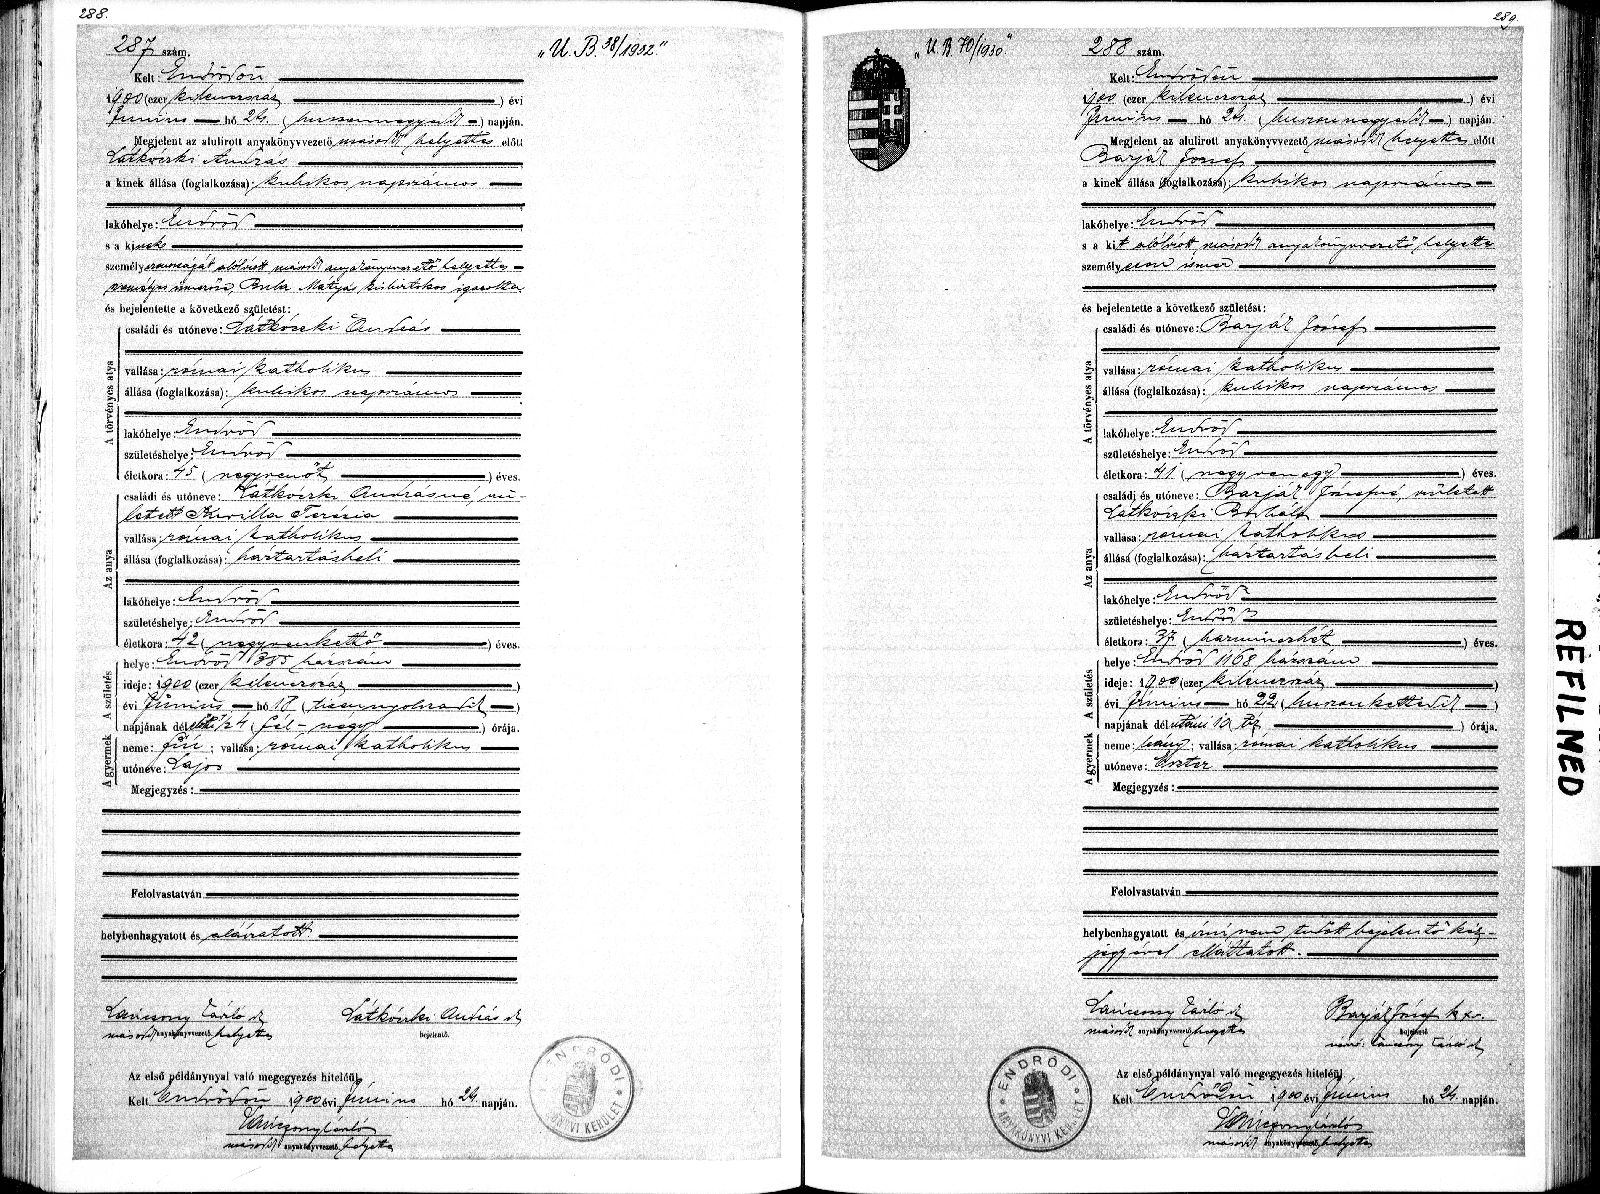 288.
287 szám.
„U. B. 38/1932"
Kelt: Endrődön
1900 (ezer kilencszáz ) évi
Junius hó 24. ( huszonnegyedik ) napján.
Megjelent az alulirott anyakönyvvezető másodk helyettes előtt
Látkóczki András
a kinek állása (foglalkozása): kubikos napszámos
lakóhelye: Endrőd
s a kinek
személyazonosságát alólirott másodk anyakönyvvezető helyettes
Mátyás kubikos igazolta
és bejelentette a következő születést:
A törvényes atya
családi és utóneve: Látkóczki András
vallása: római katholikus
állása (foglalkozása): kubikos napszámos
lakóhelye: Endrőd
születéshelye: Endrőd
életkora: 45 ( negyvenöt ) éves.
Az anya
családi és utóneve: Látkóczki Andrásné, szü-
letett Terézia
vallása: római katholikus
állása (foglalkozása): háztartásbeli
lakóhelye: Endrőd
születéshelye: Endrőd
életkora: 42 ( negyvenkettő ) éves.
A születés
helye: Endrőd 385 házszám
ideje: 1900 (ezer kilencszáz )
évi Junius hó 18 ( tizennyolcadik )
napjának délelőtti 1/24 ( fél négy ) órája.
A gyermek
neme: fiú; vallása: római katholikus
utóneve: Lajos
Megjegyzés:
Felolvastatván
helybenhagyatott és aláiratott.
Láncsony Károly
másodk anyakönyvvezető helyettes
Látkóczki András
bejelentő.
Az első példánynyal való megegyezés hiteléül
Kelt Endrődön 1900 évi Junius hó 24. napján.
másodk anyakönyvvezető helyettes
ENDRŐDI
ANYAKÖNYVI KERÜLET
289.
„U B 70/1930"
288 szám.
Kelt: Endrődön
1900 (ezer kilencszáz ) évi
Junius hó 24. ( huszonnegyedik ) napján.
Megjelent az alulirott anyakönyvvezető másodk helyettes előtt
Barját József
a kinek állása (foglalkozása): kubikos napszámos
lakóhelye: Endrőd
s a kit alólirott másodk anyakönyvvezető helyettes
személyesen ismer
és bejelentette a következő születést:
A törvényes atya
családi és utóneve: Barját József
vallása: római katholikus
állása (foglalkozása): kubikos napszámos
lakóhelye: Endrőd
születéshelye: Endrőd
életkora: 41 ( negyvenegy ) éves.
Az anya
családi és utóneve: Barját Józsefné, született
Látkóczki Borbála
vallása: római katholikus
állása (foglalkozása): háztartásbeli
lakóhelye: Endrőd
születéshelye: Endrőd
életkora: 37 ( harminczhét ) éves.
A születés
helye: Endrőd 1168 házszám
ideje: 1900 (ezer kilencszáz )
évi Junius hó 22 ( huszonkettedik )
napjának délutáni 10 tiz ) órája.
A gyermek
neme: leány; vallása: római katholikus
utóneve: Eszter
Megjegyzés:
Felolvastatván
helybenhagyatott és irni nem tudott bejelentő kéz-
jegyével elláttatott.
Láncsony Károly
másodk anyakönyvvezető helyettes
Barját József
bejelentő
Az első példánynyal való megegyezés hiteléül
Kelt Endrődön 1900 évi Junius hó 24. napján.
másodk anyakönyvvezető helyettes
ENDRŐDI
ANYAKÖNYVI KERÜLET
REFILMED